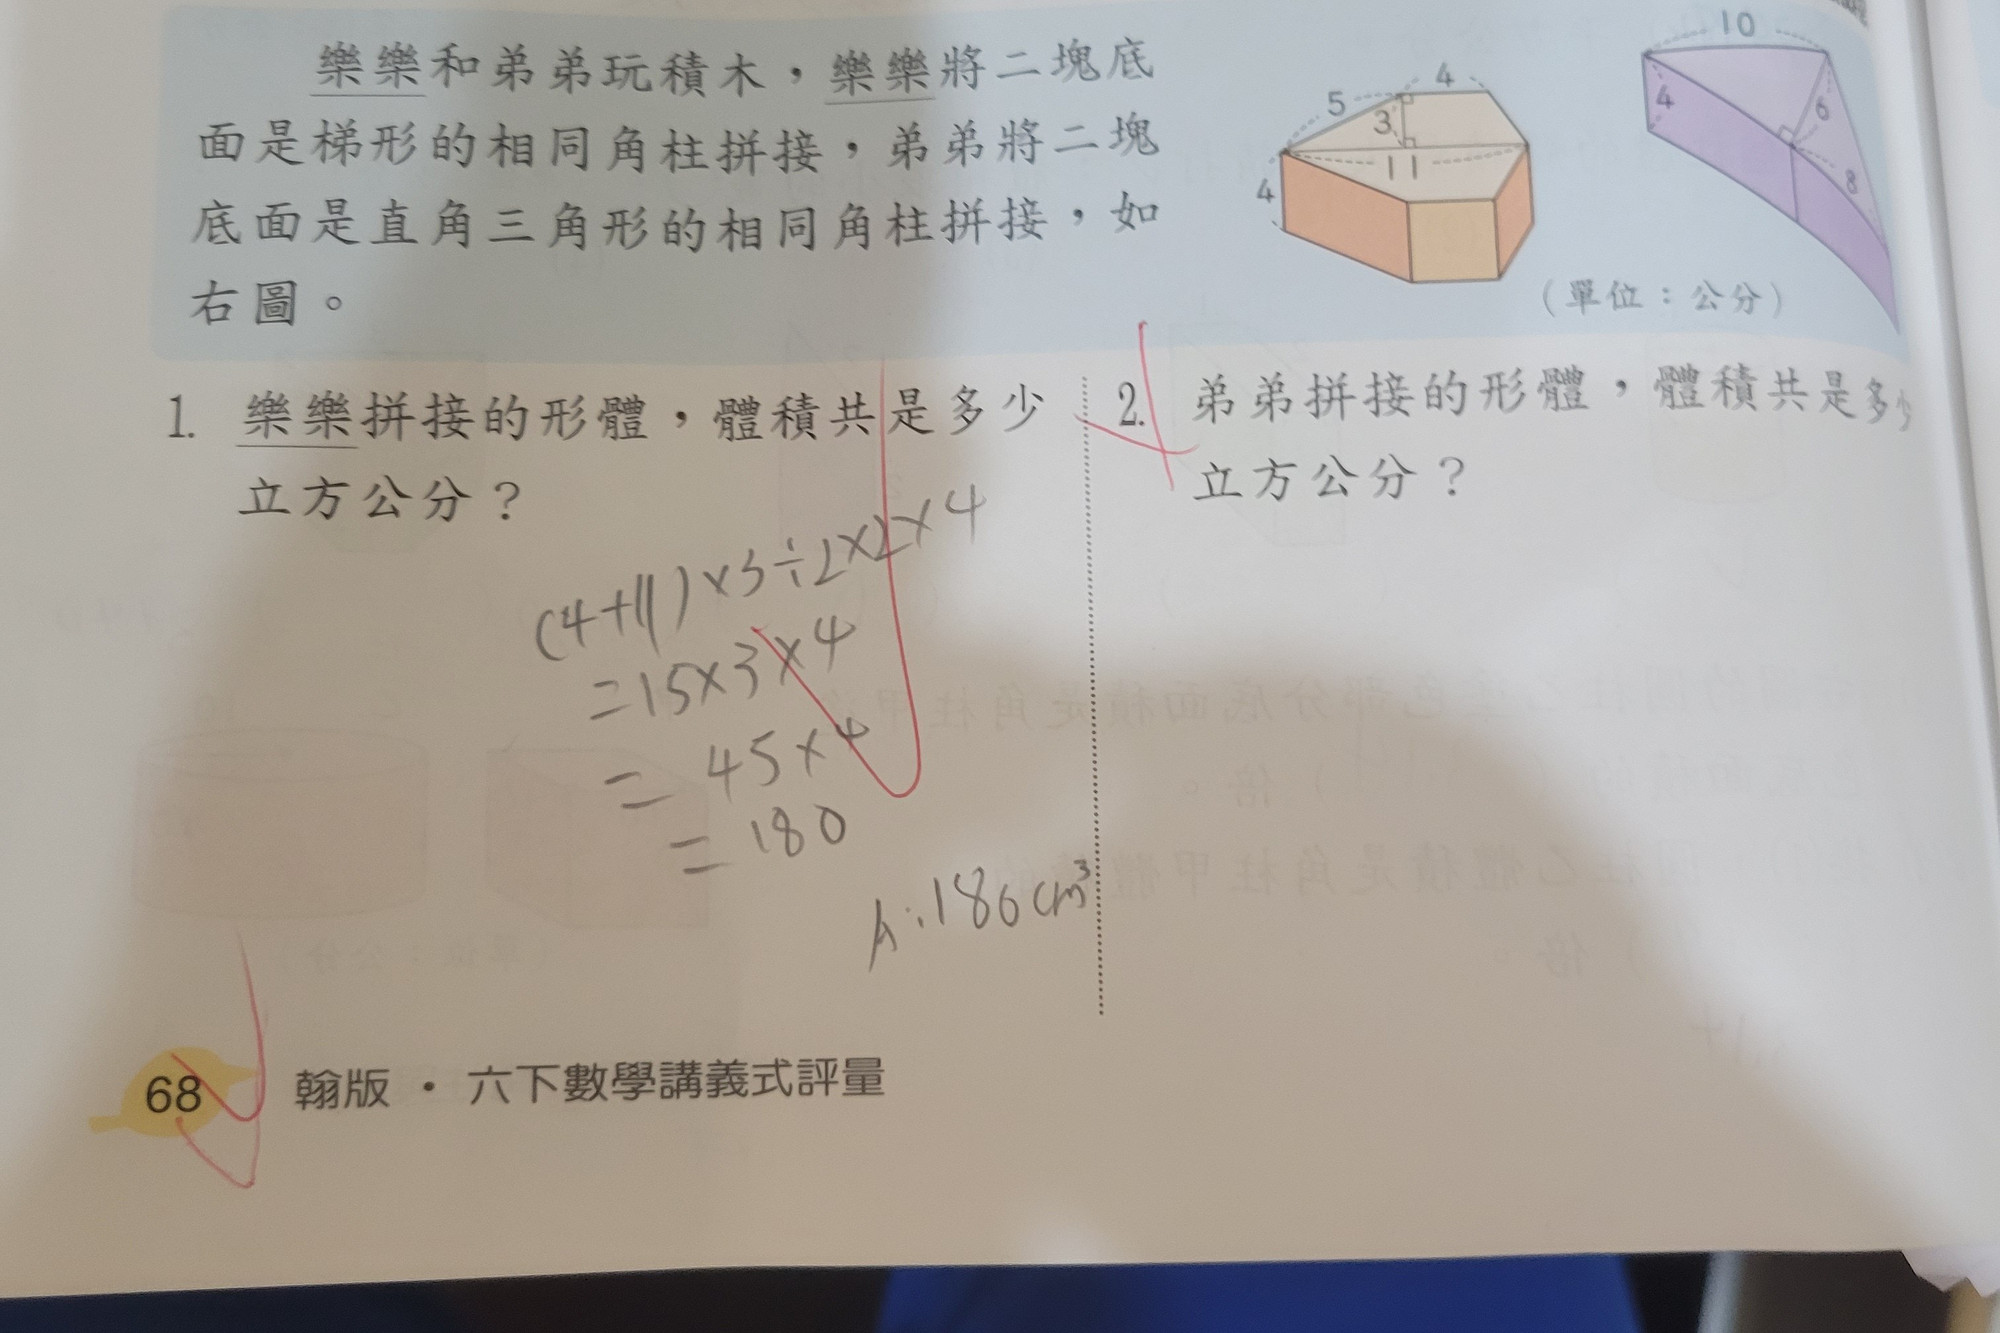 樂樂和弟弟玩積木，樂樂將二塊底
面是梯形的相同角柱拼接，弟弟將二塊
底面是直角三角形的相同角柱拼接，如
右圖。
5
4
3
11
4
10
4
6
8
（單位：公分）
1. 樂樂拼接的形體，體積共是多少
立方公分？
(4+11)×3÷2×2×4
=15×3×4
=45×4
=180
A:180cm³
2. 弟弟拼接的形體，體積共是多少
立方公分？
68 翰版・六下數學講義式評量